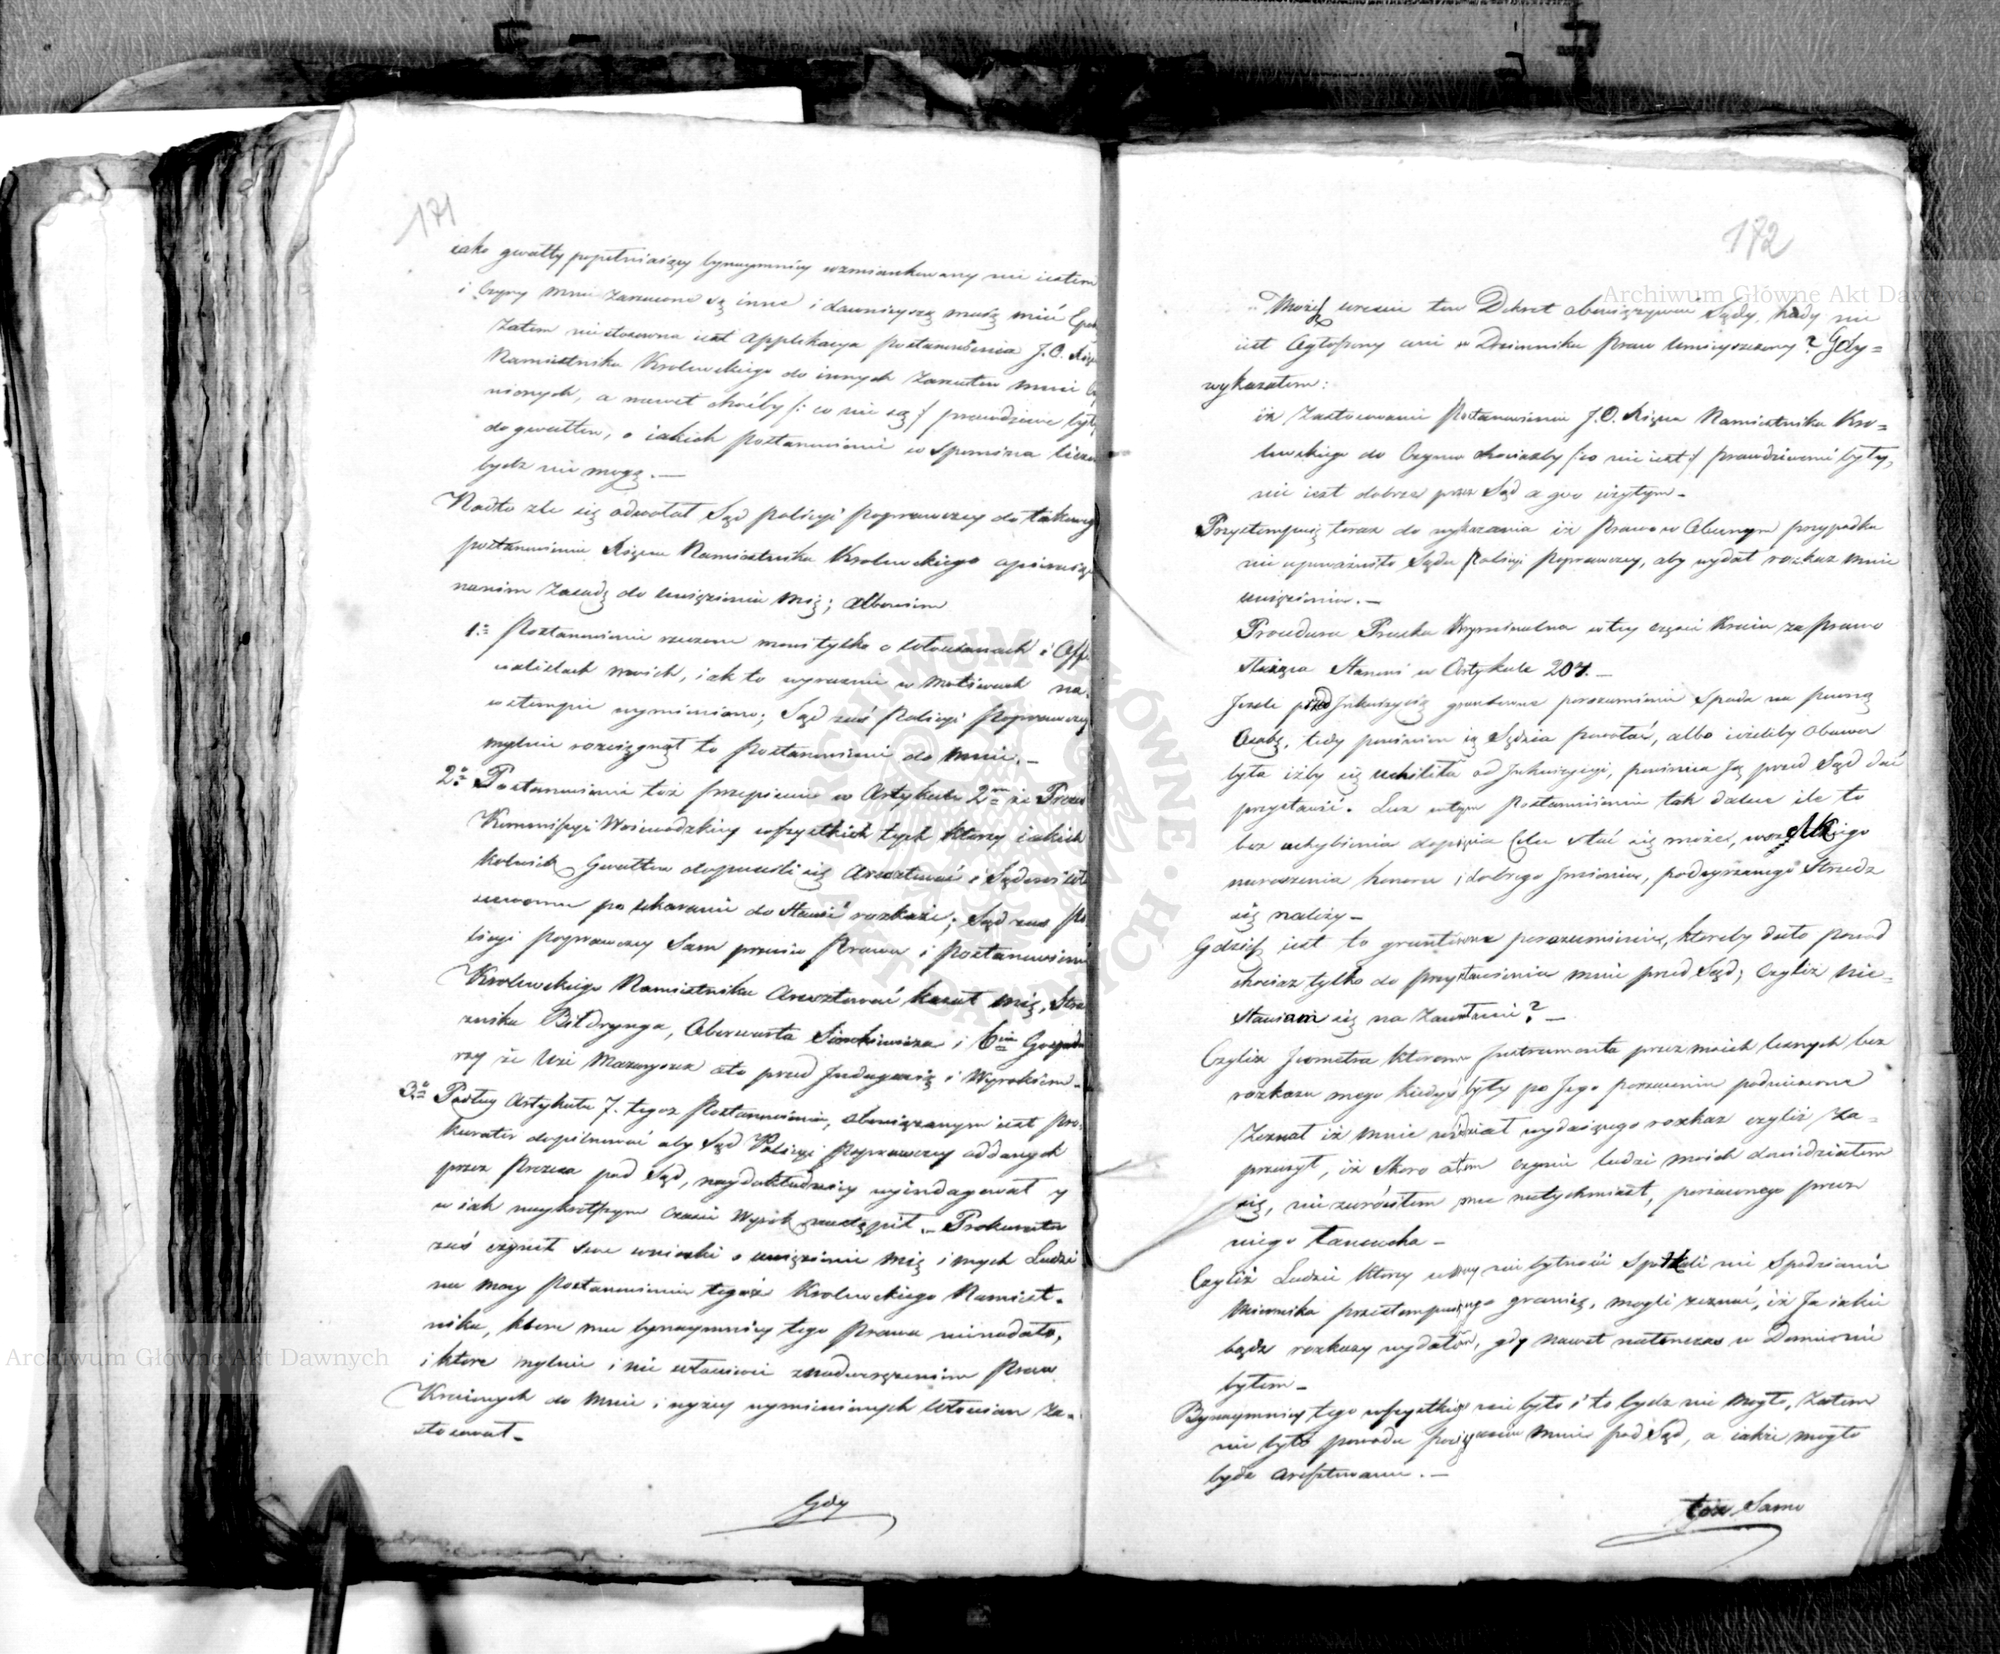 171
iako gwałty popełniaiący bynaymniey wzmiankowany nie iestem
i Czyny mnie zarzucone są inne i dawnieyszą maią mieć Epok
Zatem niestosowna iest applikacya postanowienia J.O. Xięcia
Namiestnika Krolewskiego do innych Zarzutow mnie
nionych, a nawet choćby /: co nie są :/ prawdziwe były
do gwałtow, o iakich postanowienie wspomina liczone
bydz nie mogą. —
Nadto zle się odwołał Sąd Policyi Poprawczey do takowego
postanowienia Xięcia Namiestnika Krolewskiego opieraiąc
na nim Zasadę do uwięzienia mię; albowiem
1.o Postanowienie rzeczone mowi tylko o włościanach i Off
cialistach moich, iak to wyraznie w motiwach na
wstempie wymieniono; Sąd zaś Policyi Poprawczey
mylnie rozciągnął to Postanowienie do mnie. —
2.o Postanowienie toż przepisuie w Artykule 2m że Prezes
Kommissyi Woiewodzkiey wszystkich tych ktorzy iakich
kolwiek Gwałtow dopuścili się Aresztować i Sądowi
po ukaranie do stawić rozkaże; Sąd zas Po
licyi Poprawczey Sam przeciw Prawu i Postanowieniu
Krolewskiego Namiestnika Aresztować kazał mię, Stra
znika Bildrynga, Oberwarta Sienkiewicza i 6ciu Gospoda
rzy ze Wsi Mazuryszek ato przed Indagacią i Wyrokiem. –
3.o Podług Artykułu 7. tegoz Postanowienia, obowiązanym iest Pro-
kurator dopilnować aby Sąd Policyi Poprawczey oddanych
przez Prezesa pod Sąd, naydokładniey wyindagował y
w iak naykrotszym czasie Wyrok nastąpił. – Prokurator
zaś czynił swe wnioski o uwięzienie mię i mych Ludzi
na mocy Postanowienia tegoż Krolewskiego Namiest-
nika, ktore mu bynaymniey tego prawa nienadało,
i ktore mylnie i nie właściwie znadwerężeniem Praw
Kraiowych do mnie i wyżey wymienionych Włościan Za-
stosował. –
Gdy
172
Możeż wreście ten Dekret obowiązywać Sądy, kiedy nie
iest Ogłoszony ani w Dzienniku praw umieyszczony? Gdy=
wykazałem:
iż Zastosowanie Postanowienia J.O. Xięcia Namiestnika Kro=
lewskiego do Czynow chociazby /: co nie iest :/ prawdziwemi były,
nie iest dobrze przez Sąd a quo użytym –
Przystempuię teraz do wykazania iż Prawo w Obecnym przypadku
nie upoważniło Sądu Policyi Poprawczey, aby wydał rozkaz mnie
uwięzienia. —
Procedura Pruska Kryminalna w tey częsci Kraiu za prawo
służąca Stanowi w Artykule 207. —
Jezeli przed Inkwizycią gruntowne porozumienie spada na pewną
Osobę, tedy powinien ią Sędzia powołać, albo ieżeliby obawa
była iżby się uchiliła od Inkwizycyi, powinna Ją przed Sąd dać
przystawić. Lecz w tym postanowieniu tak dalece ile to
bez uchybienia dopięcia Celu stać się może, wszelkiego
naruszenia honoru i dobrego Imienia, podeyrzanego Strzedz
się należy –
Gdzież iest to gruntowne porozumienie, ktoreby dało powod
chociaz tylko do przystawienia mnie przed Sąd; Czyliż nie-
stawiam się na Zawołanie? —
Czyliż Jeometra ktoremu Instrumenta przez moich lesnych bez
rozkazu mego kiedyś były po Jego porzuceniu podniesione
Zeznał iż mnie widział wydaiącego rozkaz czyliż Za=
przeczył, iż skoro o tem czynie ludzi moich dowiedziałem
się, nie zwróciłem mu natychmiast, porzuconego przez
niego Łancucha –
Czyliż Ludzie ktorzy w mey nie bytności Spotkali nie Spodzianie
Miernika przestempuiącego granicę, mogli zeznać, iż Ja iakie
bądz rozkazy wydałem, gdy nawet natenczas w Domu nie
byłem –
Bynaymniey tego wszystkiego nie było i to bydz nie mogło, Zatem
nie było powodu pociągania mnie pod Sąd, a iakże mogło
bydz aresztowanie. —
Toż Samo
Archiwum Główne Akt Dawnych
Archiwum Główne Akt Dawnych
ARCHIWUM GŁÓWNE AKT DAWNYCH